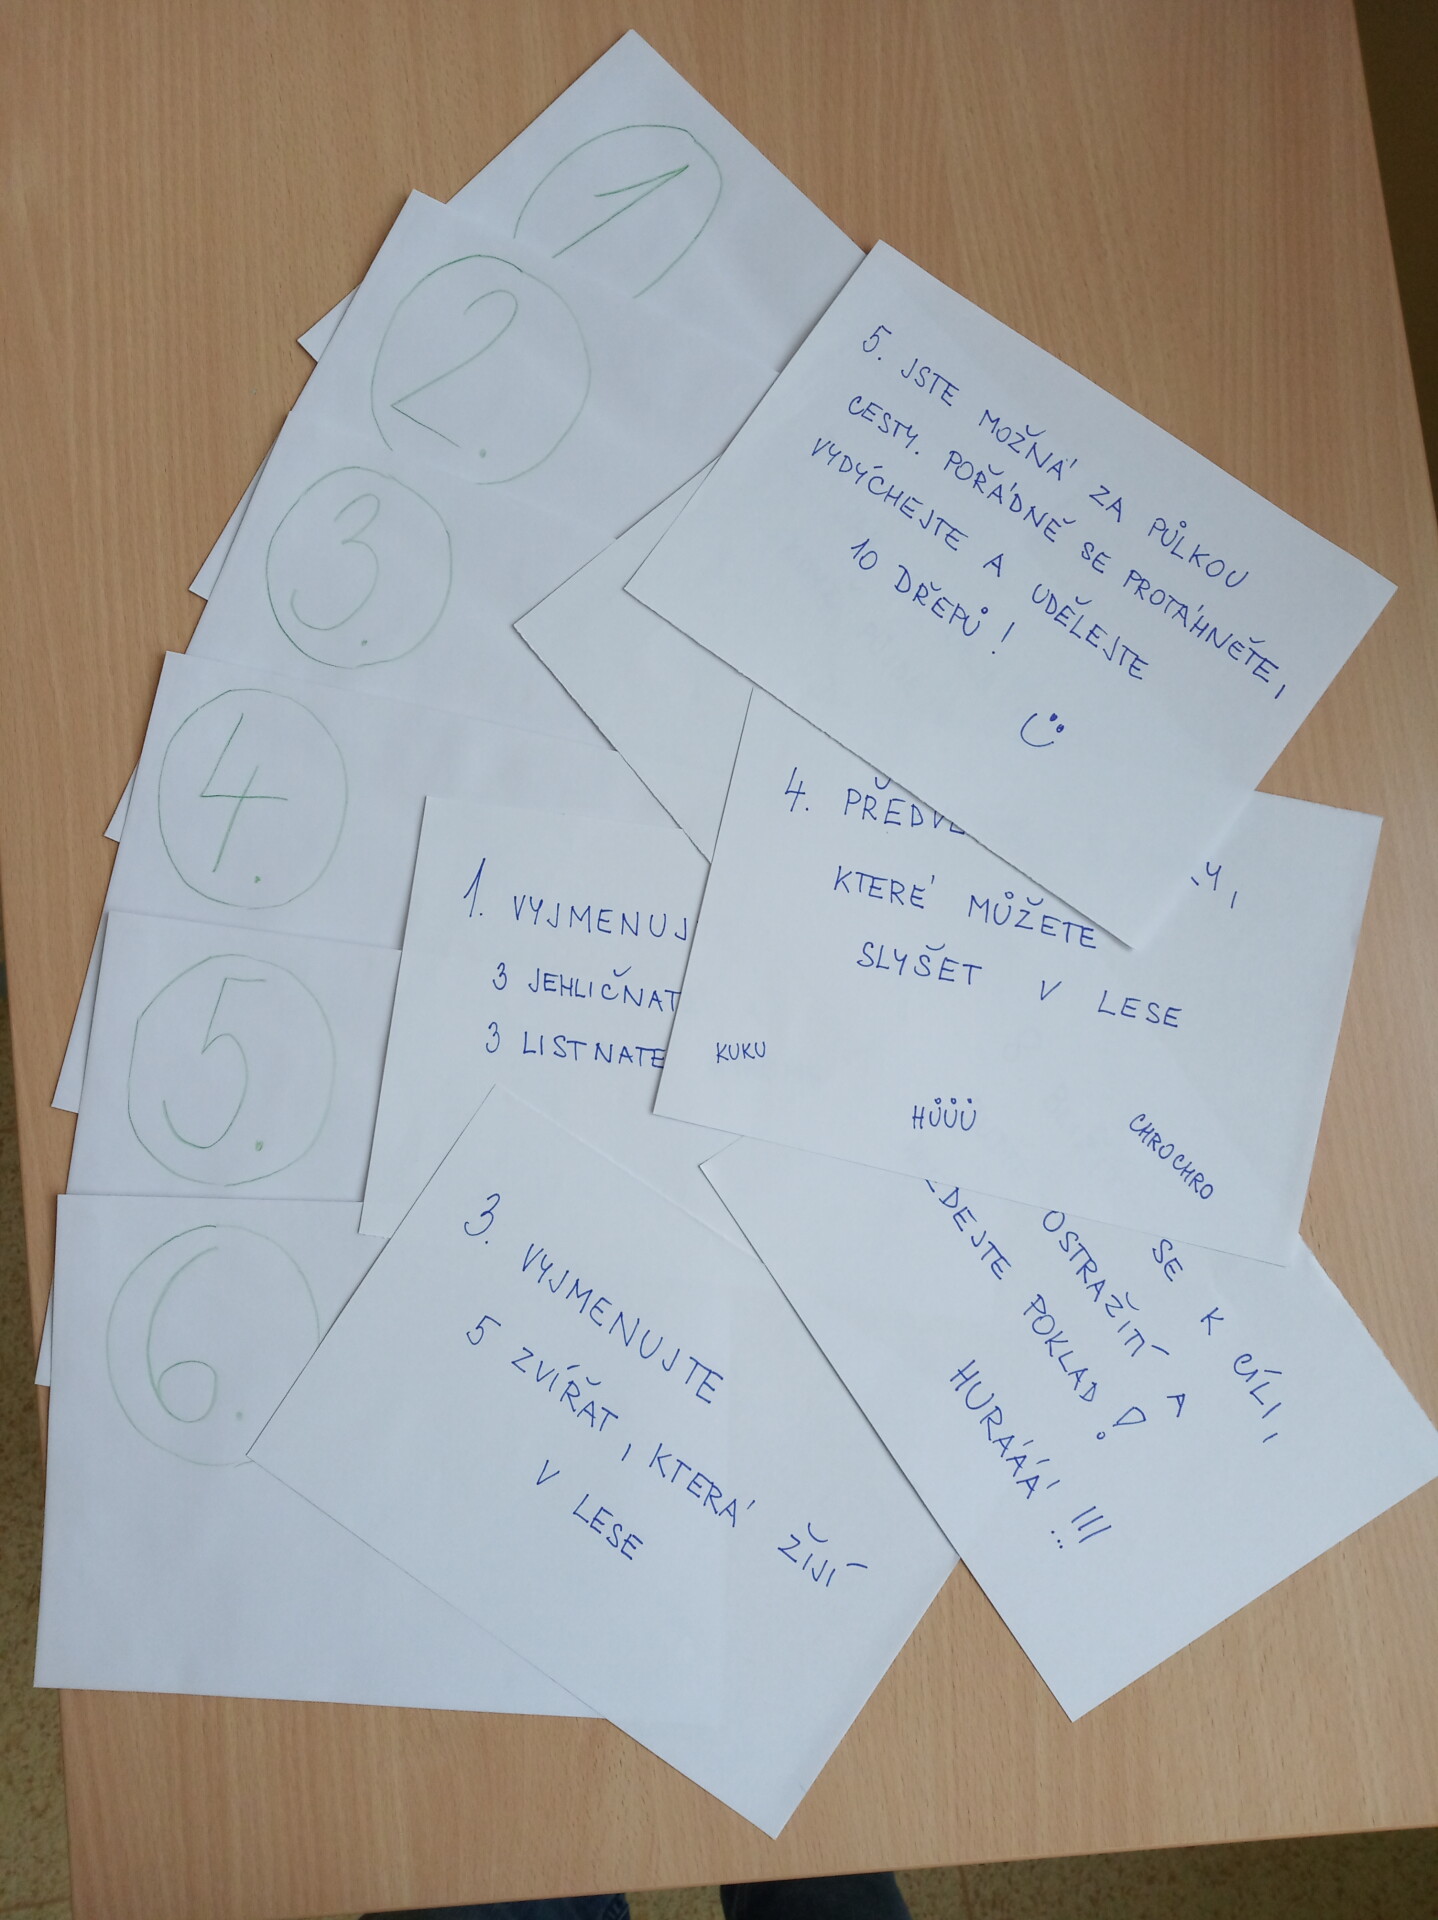 1
2.
3.
4.
5.
6.
5. JSTE MOŽNÁ ZA PŮLKOU
CESTY. POŘÁDNĚ SE PROTÁHNĚTE,
VYDÝCHEJTE A UDĚLEJTE
10 DŘEPŮ!
4.
KTERÉ MŮŽETE
SLYŠET V LESE
KUKU
HŮŮŮ
CHROCHRO
1. VYJMENUJ
3 JEHLIČNAT
3 LISTNATÉ
3. VYJMENUJTE
5 ZVÍŘAT, KTERÁ ŽIJÍ
V LESE
SE K CÍLI,
OSTRAŽITÍ A
DEJTE POKLAD!
HURÁÁÁ!!!